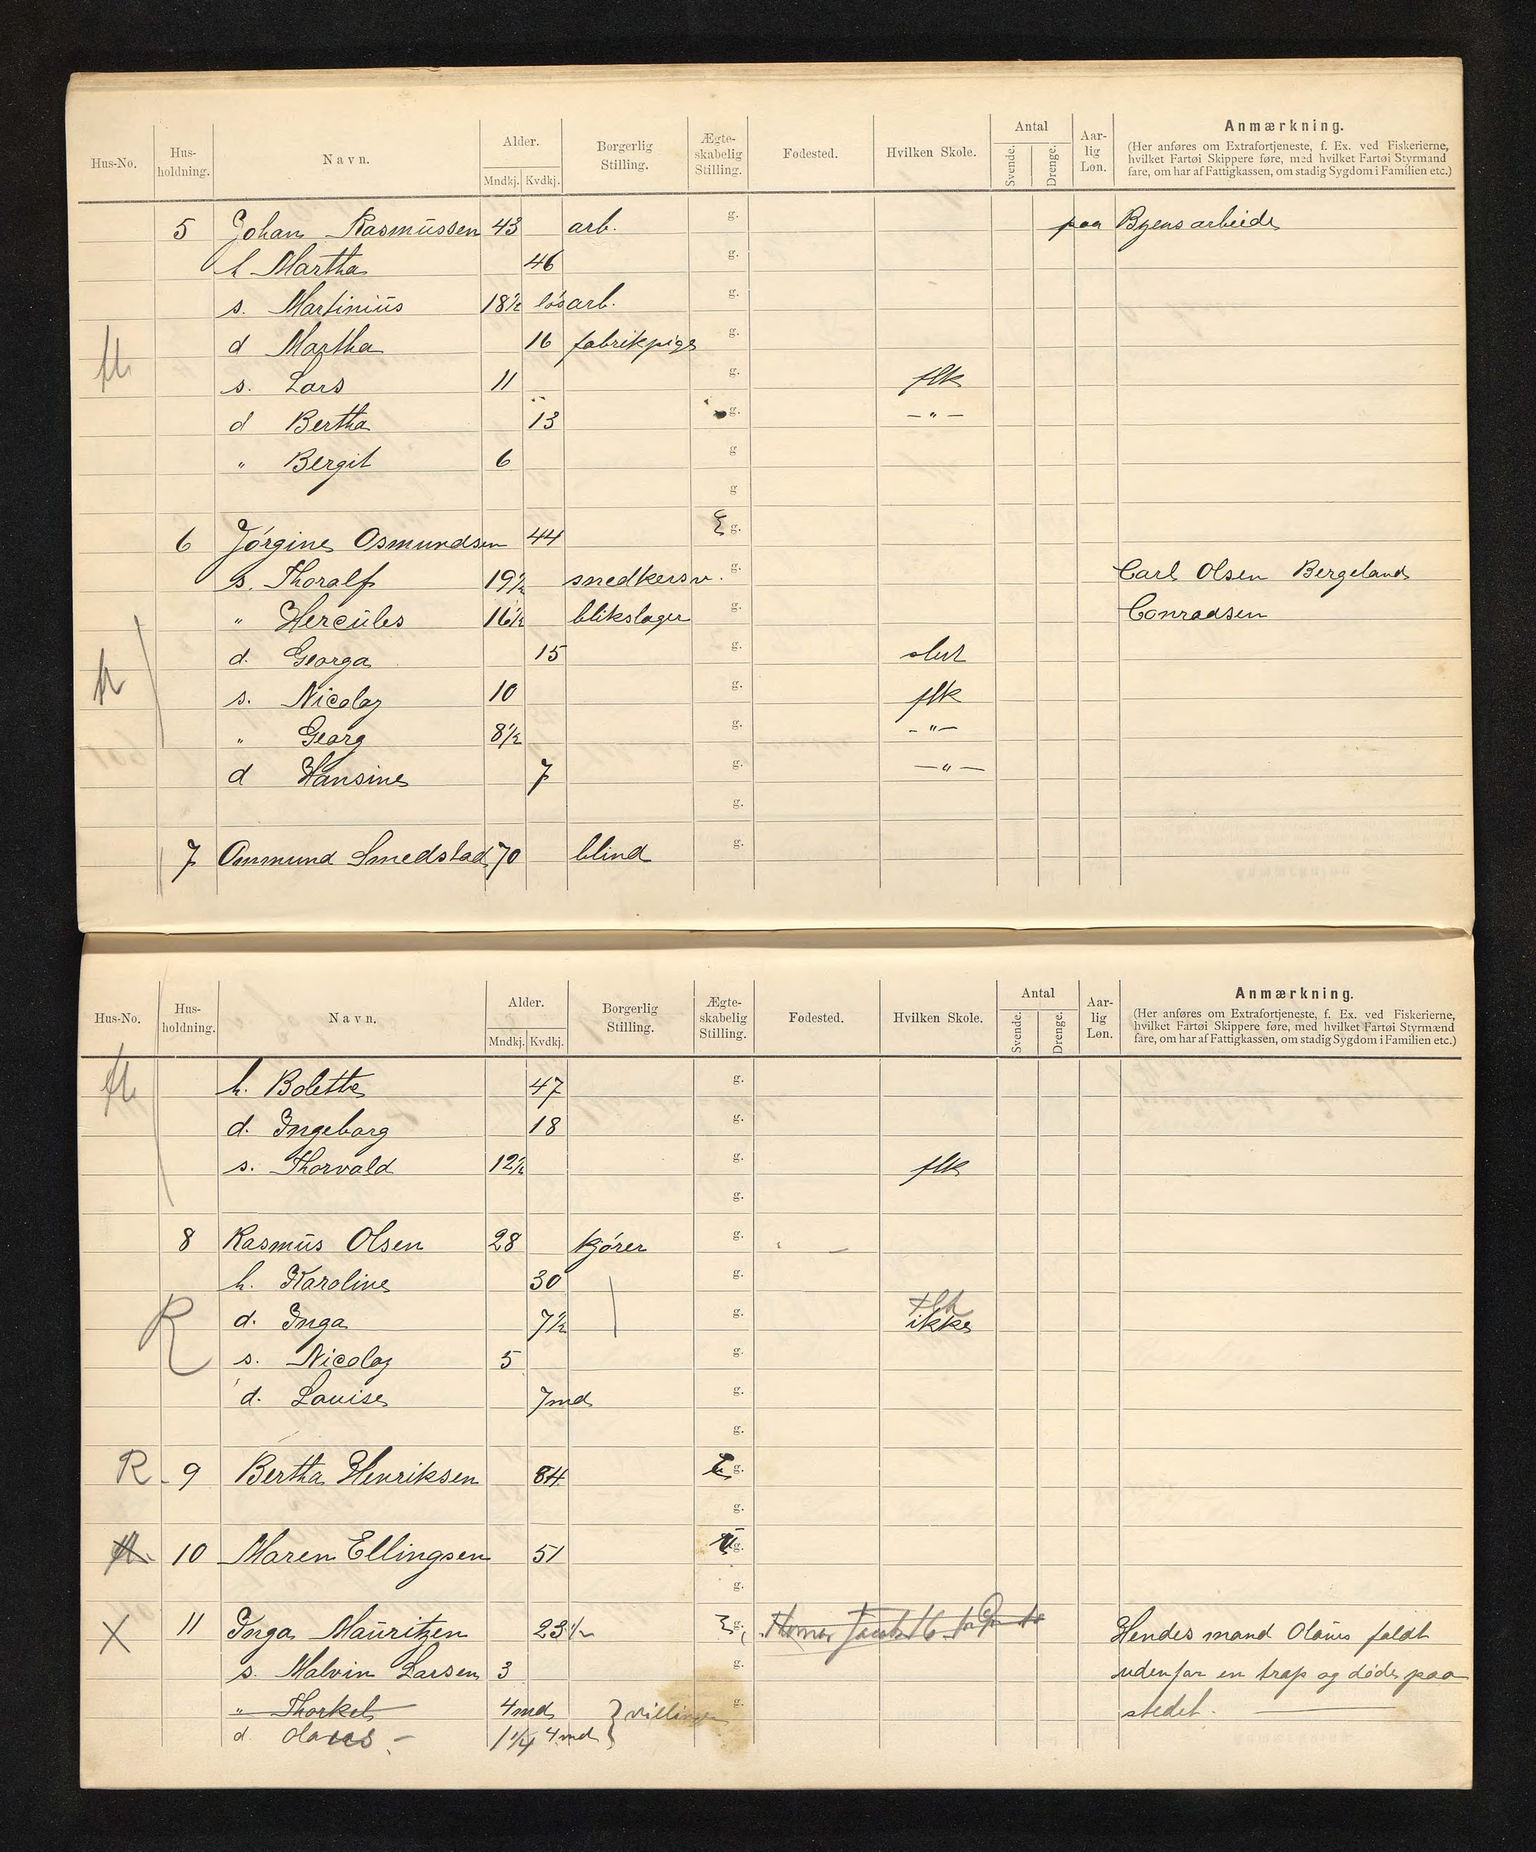 Hus-No. Hus-holdning. Navn. Alder. Mndkj. Kvdkj. Borgerlig Stilling. Ægte-skabelig Stilling. Fødested. Hvilken Skole. Antal Svende. Drenge. Aar-lig Løn. Anmærkning.
(Her anføres om Extrafortjeneste, f. Ex. ved Fiskerierne,
hvilket Fartøi Skippere føre, med hvilket Fartøi Styrmænd
fare, om har af Fattigkassen, om stadig Sygdom i Familien etc.)
5 Johan Rasmussen 43 arb. g. paa Byens arbeide
h Martha 46 g.
s. Martinius 18½ løsarb. g.
d Martha 16 fabrikpige g.
s. Lars 11 g. flk
d Bertha 13 g. — " —
" Bergit 6 g
g
6 Jørgine Osmundsen 44 E g.
s. Thoralf 19½ snedkersv. g. Carl Olsen Bergeland
" Hercules 16½ blikslager g. Conradsen
d. Georga 15 g. slut
s. Nicolay 10 g. flk
" Georg 8½ g. - " -
d Hansine 7 g. — " —
g.
7 Ommund Smedstad 70 blind g.
Hus-No. Hus-holdning. Navn. Alder. Mndkj. Kvdkj. Borgerlig Stilling. Ægte-skabelig Stilling. Fødested. Hvilken Skole. Antal Svende. Drenge. Aar-lig Løn. Anmærkning.
(Her anføres om Extrafortjeneste, f. Ex. ved Fiskerierne,
hvilket Fartøi Skippere føre, med hvilket Fartøi Styrmænd
fare, om har af Fattigkassen, om stadig Sygdom i Familien etc.)
h. Bolette 47 g.
d. Ingeborg 18 g.
s. Thorvald 12½ g. flk
g.
8 Rasmus Olsen 28 kjører g.
h. Karoline 30 g.
R d. Inga 7½ g. ikke
s. Nicolay 5 g.
d. Louise 7md g.
g.
R 9 Bertha Henriksen 84 E g.
g.
10 Maren Ellingsen 51 g.
g.
X 11 Inga Mauritzen 23½ E g. Hendes mand Olaus faldt
s. Malvin Larsen 3 g. udenfor en trap og døde paa
" Thorkel 4md } tvillinger g. stedet.
d. Olaus - 1¼ 4md